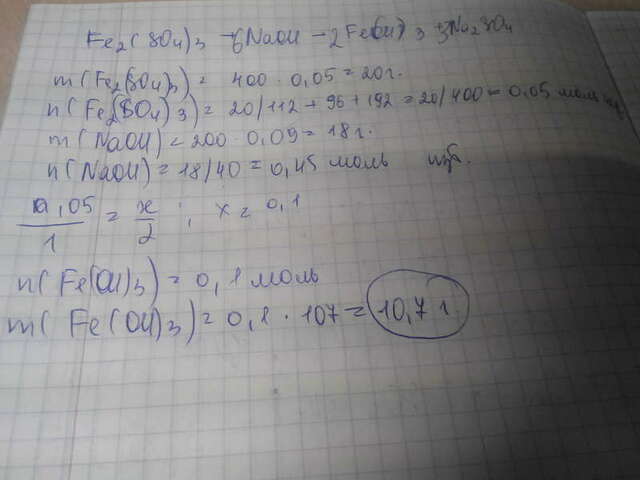 Fe2(SO4)3 + 6NaOH = 2Fe(OH)3 + 3Na2SO4
m(Fe2(SO4)3) = 400 · 0,05 = 20 г.
n(Fe2(SO4)3) = 20/112 + 96 + 192 = 20/400 = 0,05 моль
m(NaOH) = 200 · 0,09 = 18 г.
n(NaOH) = 18/40 = 0,45 моль изб.
0,05/1 = x/2 ; x = 0,1
n(Fe(OH)3) = 0,1 моль
m(Fe(OH)3) = 0,1 · 107 = 10,7 г.